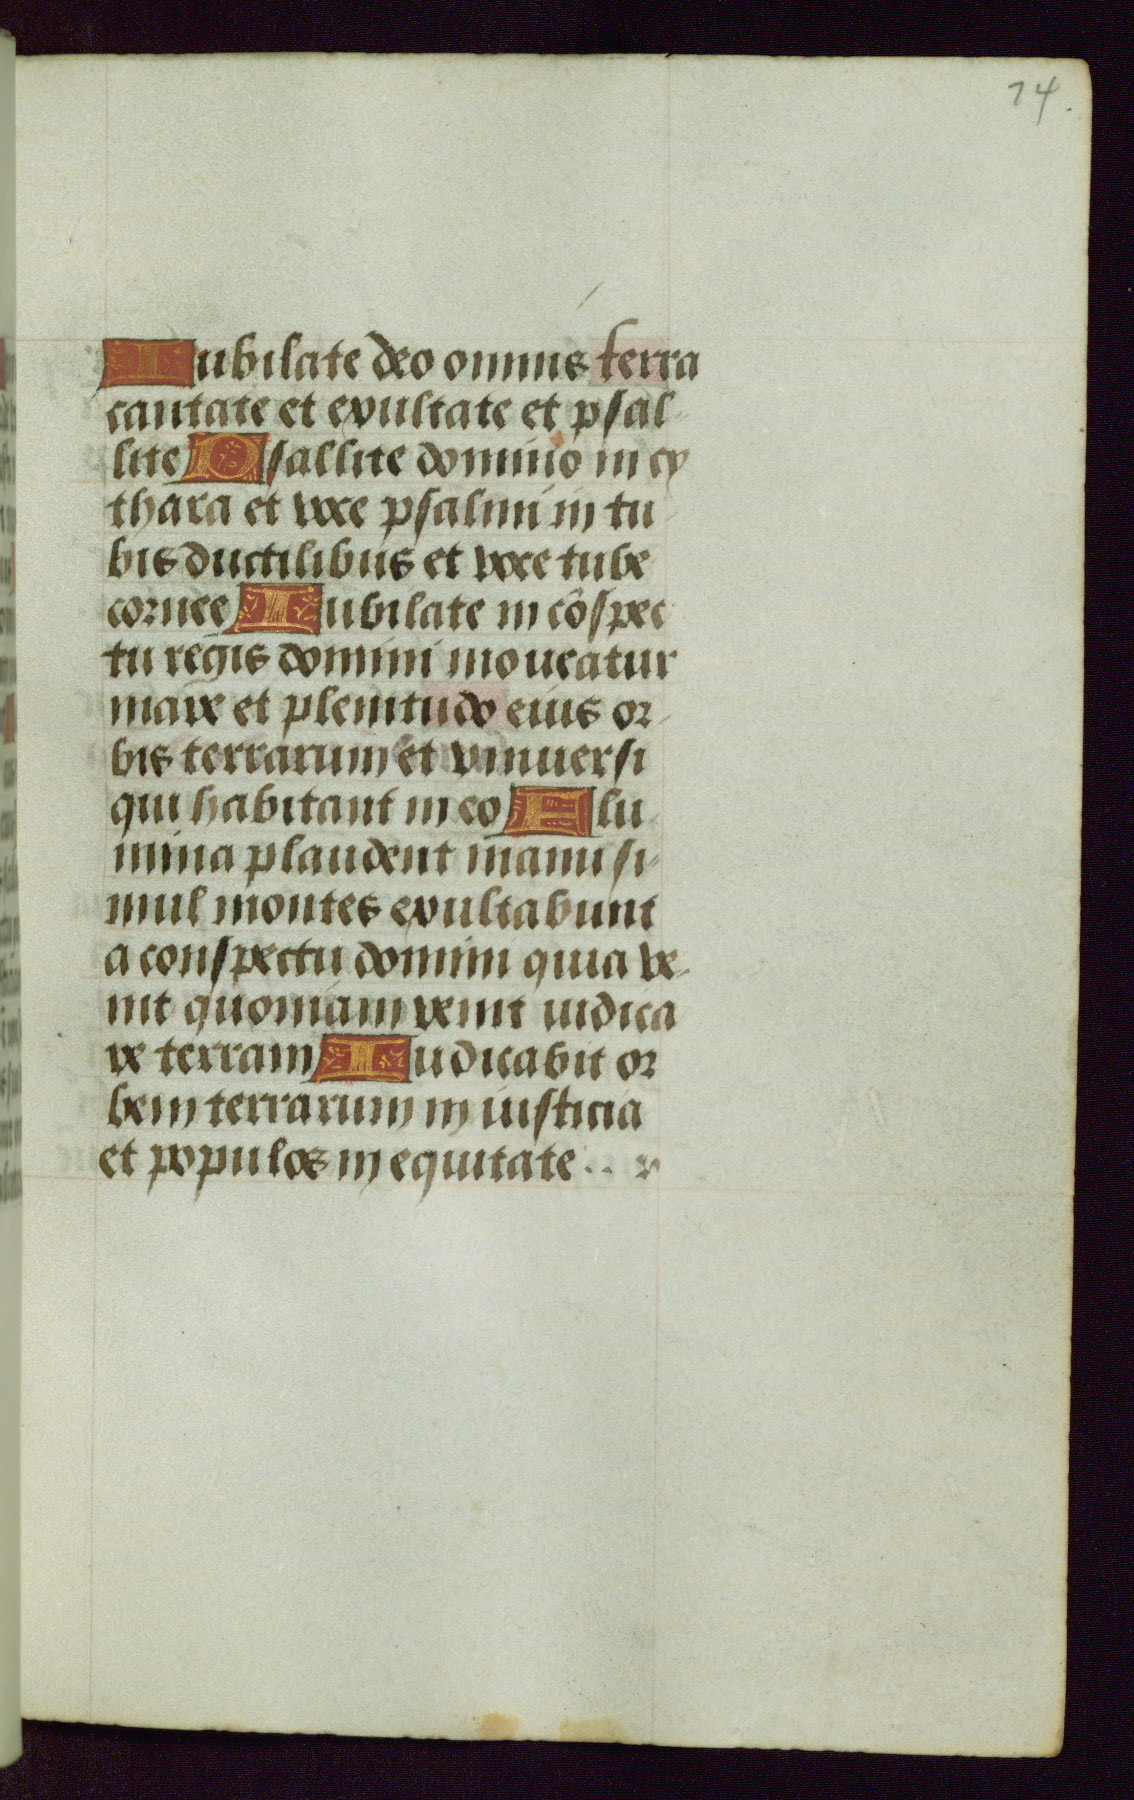 74.
Iubilate deo omnis terra
cantate et exultate et psal-
lite Psallite domino in cy
thara et voce psalmi in tu
bis ductilibus et voce tube
cornee Iubilate in cōspec
tu regis domini moueatur
mare et plenitudo eius or-
bis terrarum et vniuersi
qui habitant in eo Flu
mina plaudent manu si-
mul montes exultabunt
a conspectu domini quia ve-
nit quoniam venit iudica
re terram Iudicabit or
bem terrarum in iusticia
et populos in equitate..